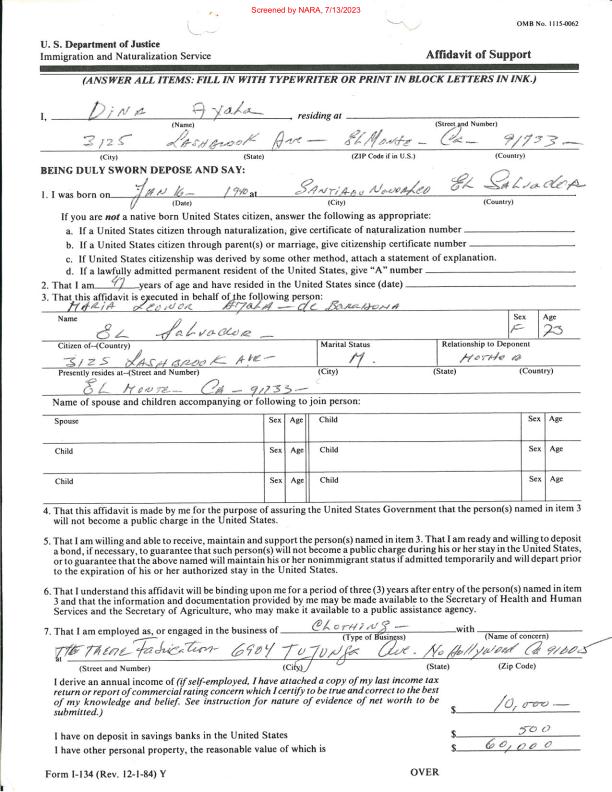 Screened by NARA, 7/13/2023
OMB No. 1115-0062
U. S. Department of Justice
Immigration and Naturalization Service
Affidavit of Support
(ANSWER ALL ITEMS: FILL IN WITH TYPEWRITER OR PRINT IN BLOCK LETTERS IN INK.)
I, DINA Ayala, residing at
(Name) (Street and Number)
3125 LASHBROOK Ave — EL MONTE — Ca — 91733 —
(City) (State) (ZIP Code if in U.S.) (Country)
BEING DULY SWORN DEPOSE AND SAY:
1. I was born on JAN 16 — 1940 at SANTIAGO EL Salvador
(Date) (City) (Country)
If you are not a native born United States citizen, answer the following as appropriate:
a. If a United States citizen through naturalization, give certificate of naturalization number
b. If a United States citizen through parent(s) or marriage, give citizenship certificate number
c. If United States citizenship was derived by some other method, attach a statement of explanation.
d. If a lawfully admitted permanent resident of the United States, give "A" number
2. That I am 47 years of age and have resided in the United States since (date)
3. That this affidavit is executed in behalf of the following person:
MARIA LEONOR AYALA — de BARAHONA
Name Sex Age
EL Salvador — F 23
Citizen of–(Country) Marital Status Relationship to Deponent
3125 LASHBROOK AVE — M. MOTHER
Presently resides at–(Street and Number) (City) (State) (Country)
EL MONTE — CA — 91733 —
Name of spouse and children accompanying or following to join person:
Spouse Sex Age Child Sex Age
Child Sex Age Child Sex Age
Child Sex Age Child Sex Age
4. That this affidavit is made by me for the purpose of assuring the United States Government that the person(s) named in item 3
will not become a public charge in the United States.
5. That I am willing and able to receive, maintain and support the person(s) named in item 3. That I am ready and willing to deposit
a bond, if necessary, to guarantee that such person(s) will not become a public charge during his or her stay in the United States,
or to guarantee that the above named will maintain his or her nonimmigrant status if admitted temporarily and will depart prior
to the expiration of his or her authorized stay in the United States.
6. That I understand this affidavit will be binding upon me for a period of three (3) years after entry of the person(s) named in item
3 and that the information and documentation provided by me may be made available to the Secretary of Health and Human
Services and the Secretary of Agriculture, who may make it available to a public assistance agency.
7. That I am employed as, or engaged in the business of CLOTHING — with
(Type of Business) (Name of concern)
at THEME 6904 TUJUNGA Ave. No Hollywood Ca 91605
(Street and Number) (City) (State) (Zip Code)
I derive an annual income of (if self-employed, I have attached a copy of my last income tax
return or report of commercial rating concern which I certify to be true and correct to the best
of my knowledge and belief. See instruction for nature of evidence of net worth to be
submitted.) $ 10,000 —
I have on deposit in savings banks in the United States $ 500
I have other personal property, the reasonable value of which is $ 60,000
Form I-134 (Rev. 12-1-84) Y OVER